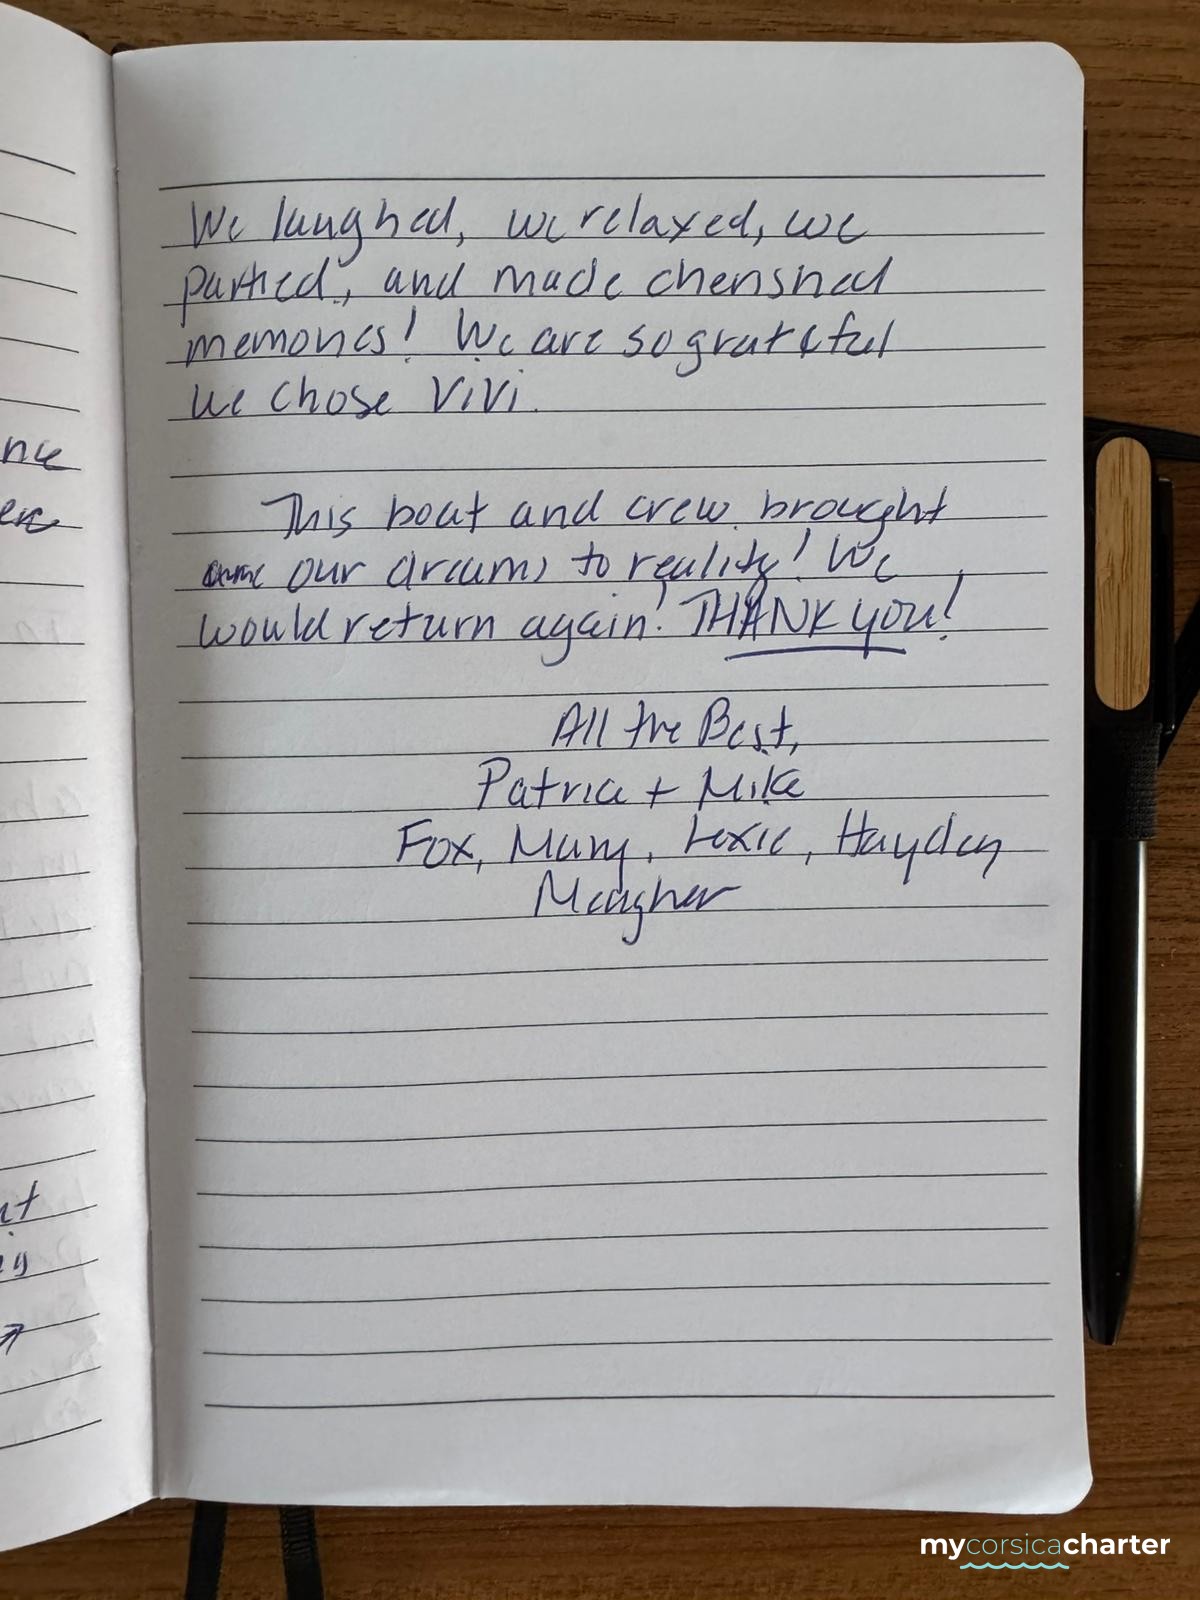 We laughed, we relaxed, we
partied, and made cherished
memories! We are so grateful
we chose ViVi.
This boat and crew brought
our dreams to reality! We
would return again! THANK you!
All the Best,
Patrice + Mike
Fox, Mary, Lexie, Hayden
Meagher
nce
ere
mycorsicacharter